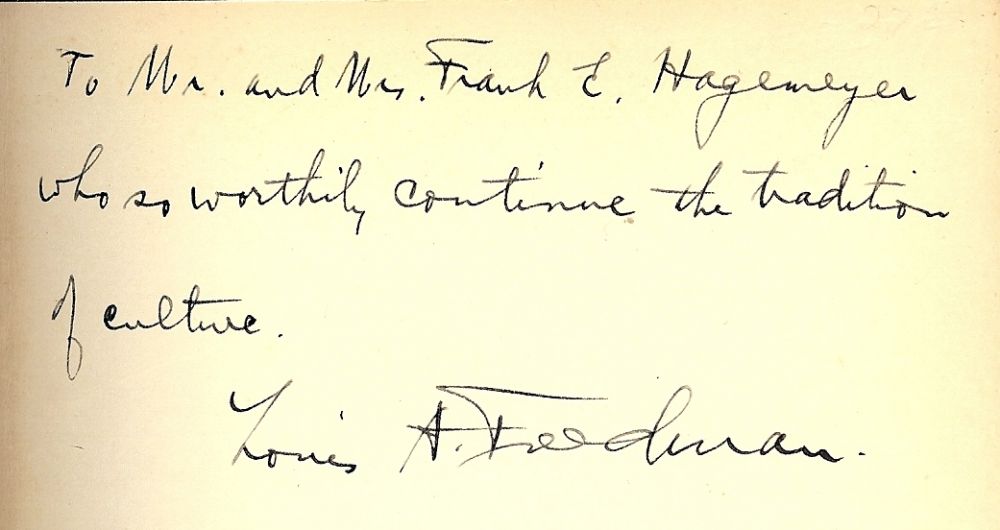 To Mr. and Mrs. Frank E. Hagemeyer
who so worthily continue the tradition
of culture.
Louis A. Freedman.